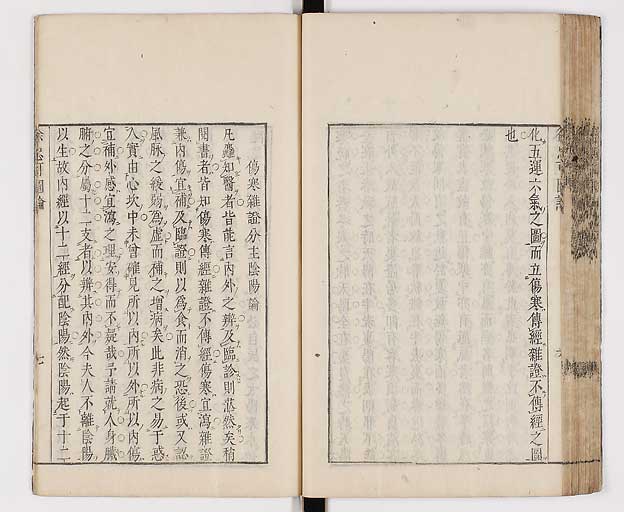 化五運六氣之圖而立傷寒傳經雜證不傳經之圖
也
傷寒雜證分主陰陽論
凡麤知醫者皆能言內外之辨及臨診則茫然矣稍
閱書者皆知傷寒傳經雜證不傳經傷寒宜瀉雜證
兼內傷宜補及臨證則以為食而消之恐後或又認
風脉之緩弱為虛而補之增病矣此非病之易于惑
人實由心坎中未曾確見所以內所以外所以內傷
宜補外感宜瀉之理安得而不疑哉予請就人身臟
腑之分屬十二支者以辨其內外今夫人不離陰陽
以生故內經以十二經分配陰陽然陰陽起于十二
圖論
七